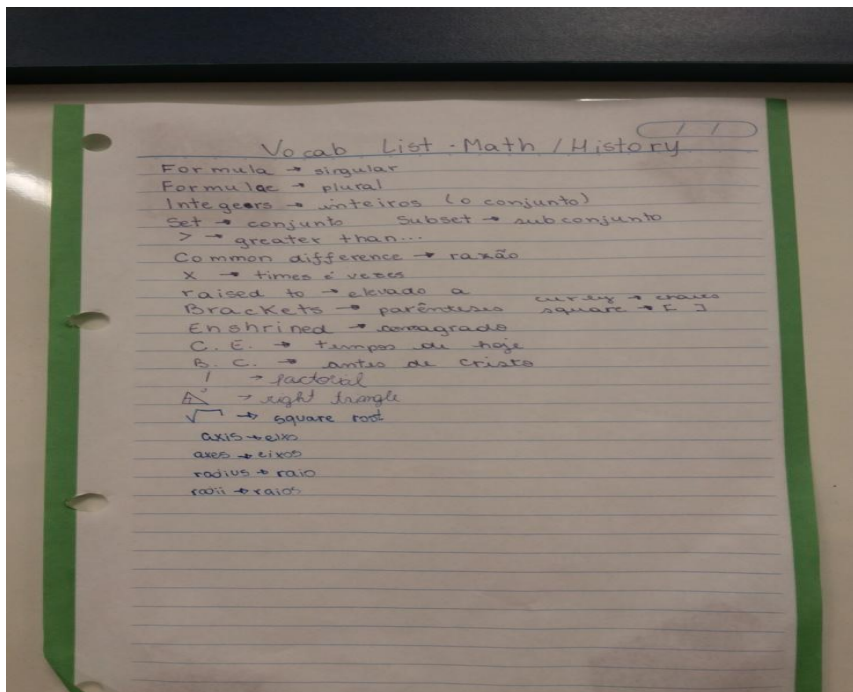 Vocab List - Math / History
Formula → singular
Formulae → plural
Integers → inteiros (o conjunto)
Set → conjunto Subset → subconjunto
> → greater than...
Common difference → razão
X → times é vezes
raised to → elevado a
Brackets → parênteses curly → chaves square → [ ]
Enshrined → consagrado
C. E. → tempos de hoje
B. C. → antes de cristo
! → factorial
→ right triangle
√ → square root
axis → eixo
axes → eixos
radius → raio
radii → raios